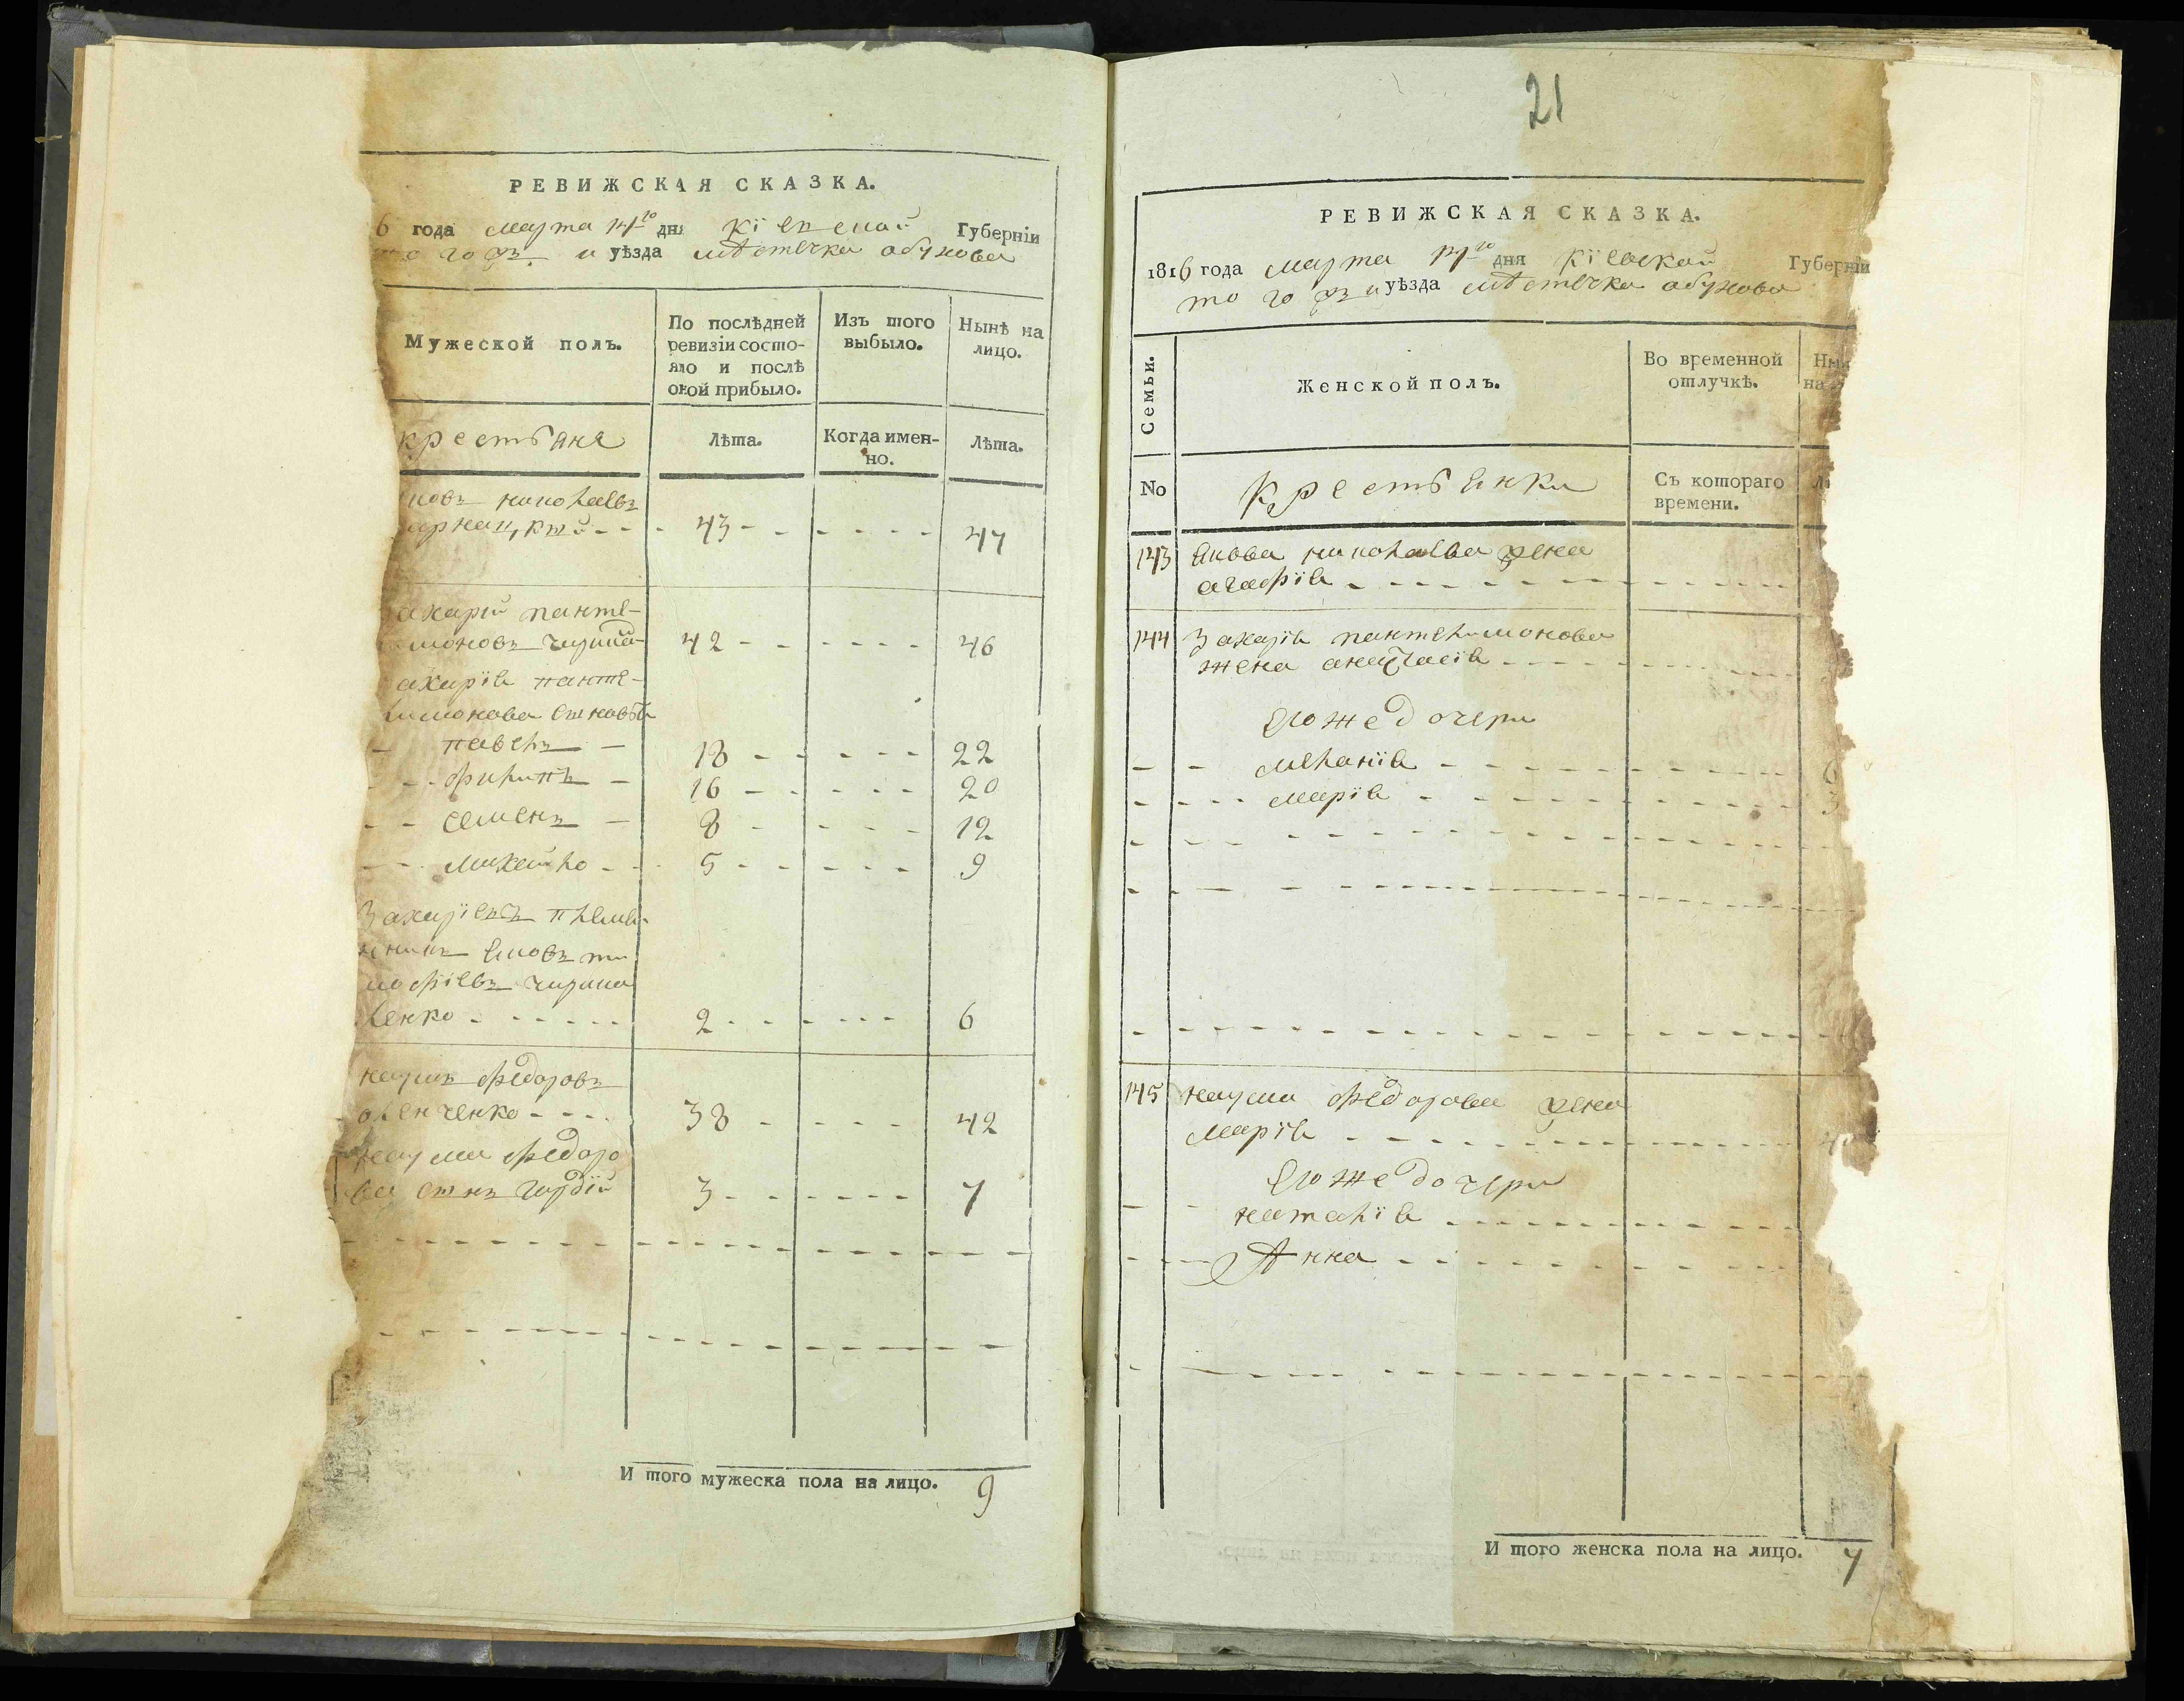 РЕВИЖСКАЯ СКАЗКА.
6 года марта 14го дня Кіевской Губерніи
то го жъ и уѣзда мѣстечка обухова
Мужеской полъ.
По послѣдней ревизіи состояло и послѣ оной прибыло.
Изъ того выбыло.
Нынѣ на лицо.
крестьяне
Лѣта.
Когда именно.
Лѣта.
ковъ николаевъ
43 47
ахарій панте-
моновъ 42 46
ахарія панте-
лимонова сыновья
павелъ 18 22
филипъ 16 20
семенъ 8 12
михайло 5 9
Захаріевъ племя-
нникъ яковъ ти
мофіевъ
венко 2 6
наумъ федоровъ
38 42
наума федоро
ва сынъ гордій 3 7
И того мужеска пола на лицо. 9
21
РЕВИЖСКАЯ СКАЗКА.
1816 года марта 14го дня Кіевской Губерніи
то го жъ и уѣзда мѣстечка обухова
Семьи.
Женской полъ.
Во временной отлучкѣ.
Ны
на
No
Крестьянки
Съ котораго времени.
143 Якова николаева жена
агафія
144 Захарія пантелимонова
жена анастасія
его же дочери
меланія
марія
145 наума федорова жена
марія
его же дочери
наталія
Анна
И того женска пола на лицо. 7